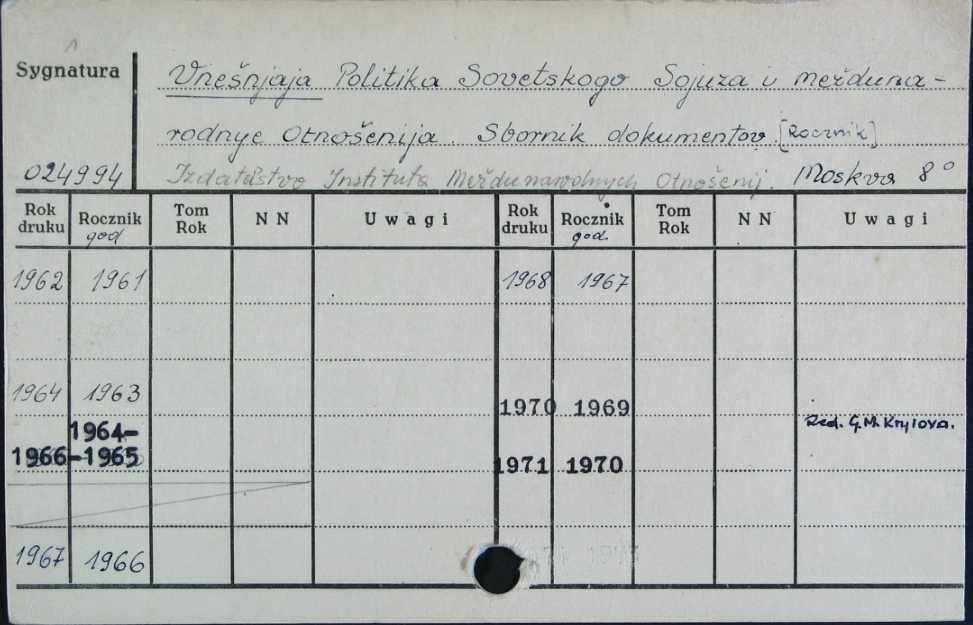 Sygnatura
Vnešnjaja Politika Sovetskogo Sojuza i mežduna-
rodnye Otnošenija. Sbornik dokumentov. [Rocznik]
024994 Izdatelstvo Instituta Meždunarodnych Otnošenij. Moskva 8°
Rok druku Rocznik god Tom Rok N N Uwagi Rok druku Rocznik god. Tom Rok N N Uwagi
1962 1961 1968 1967
1964 1963 1970 1969 Red. G.M. Krylova.
1964-
1966-1965 1971 1970
1967 1966